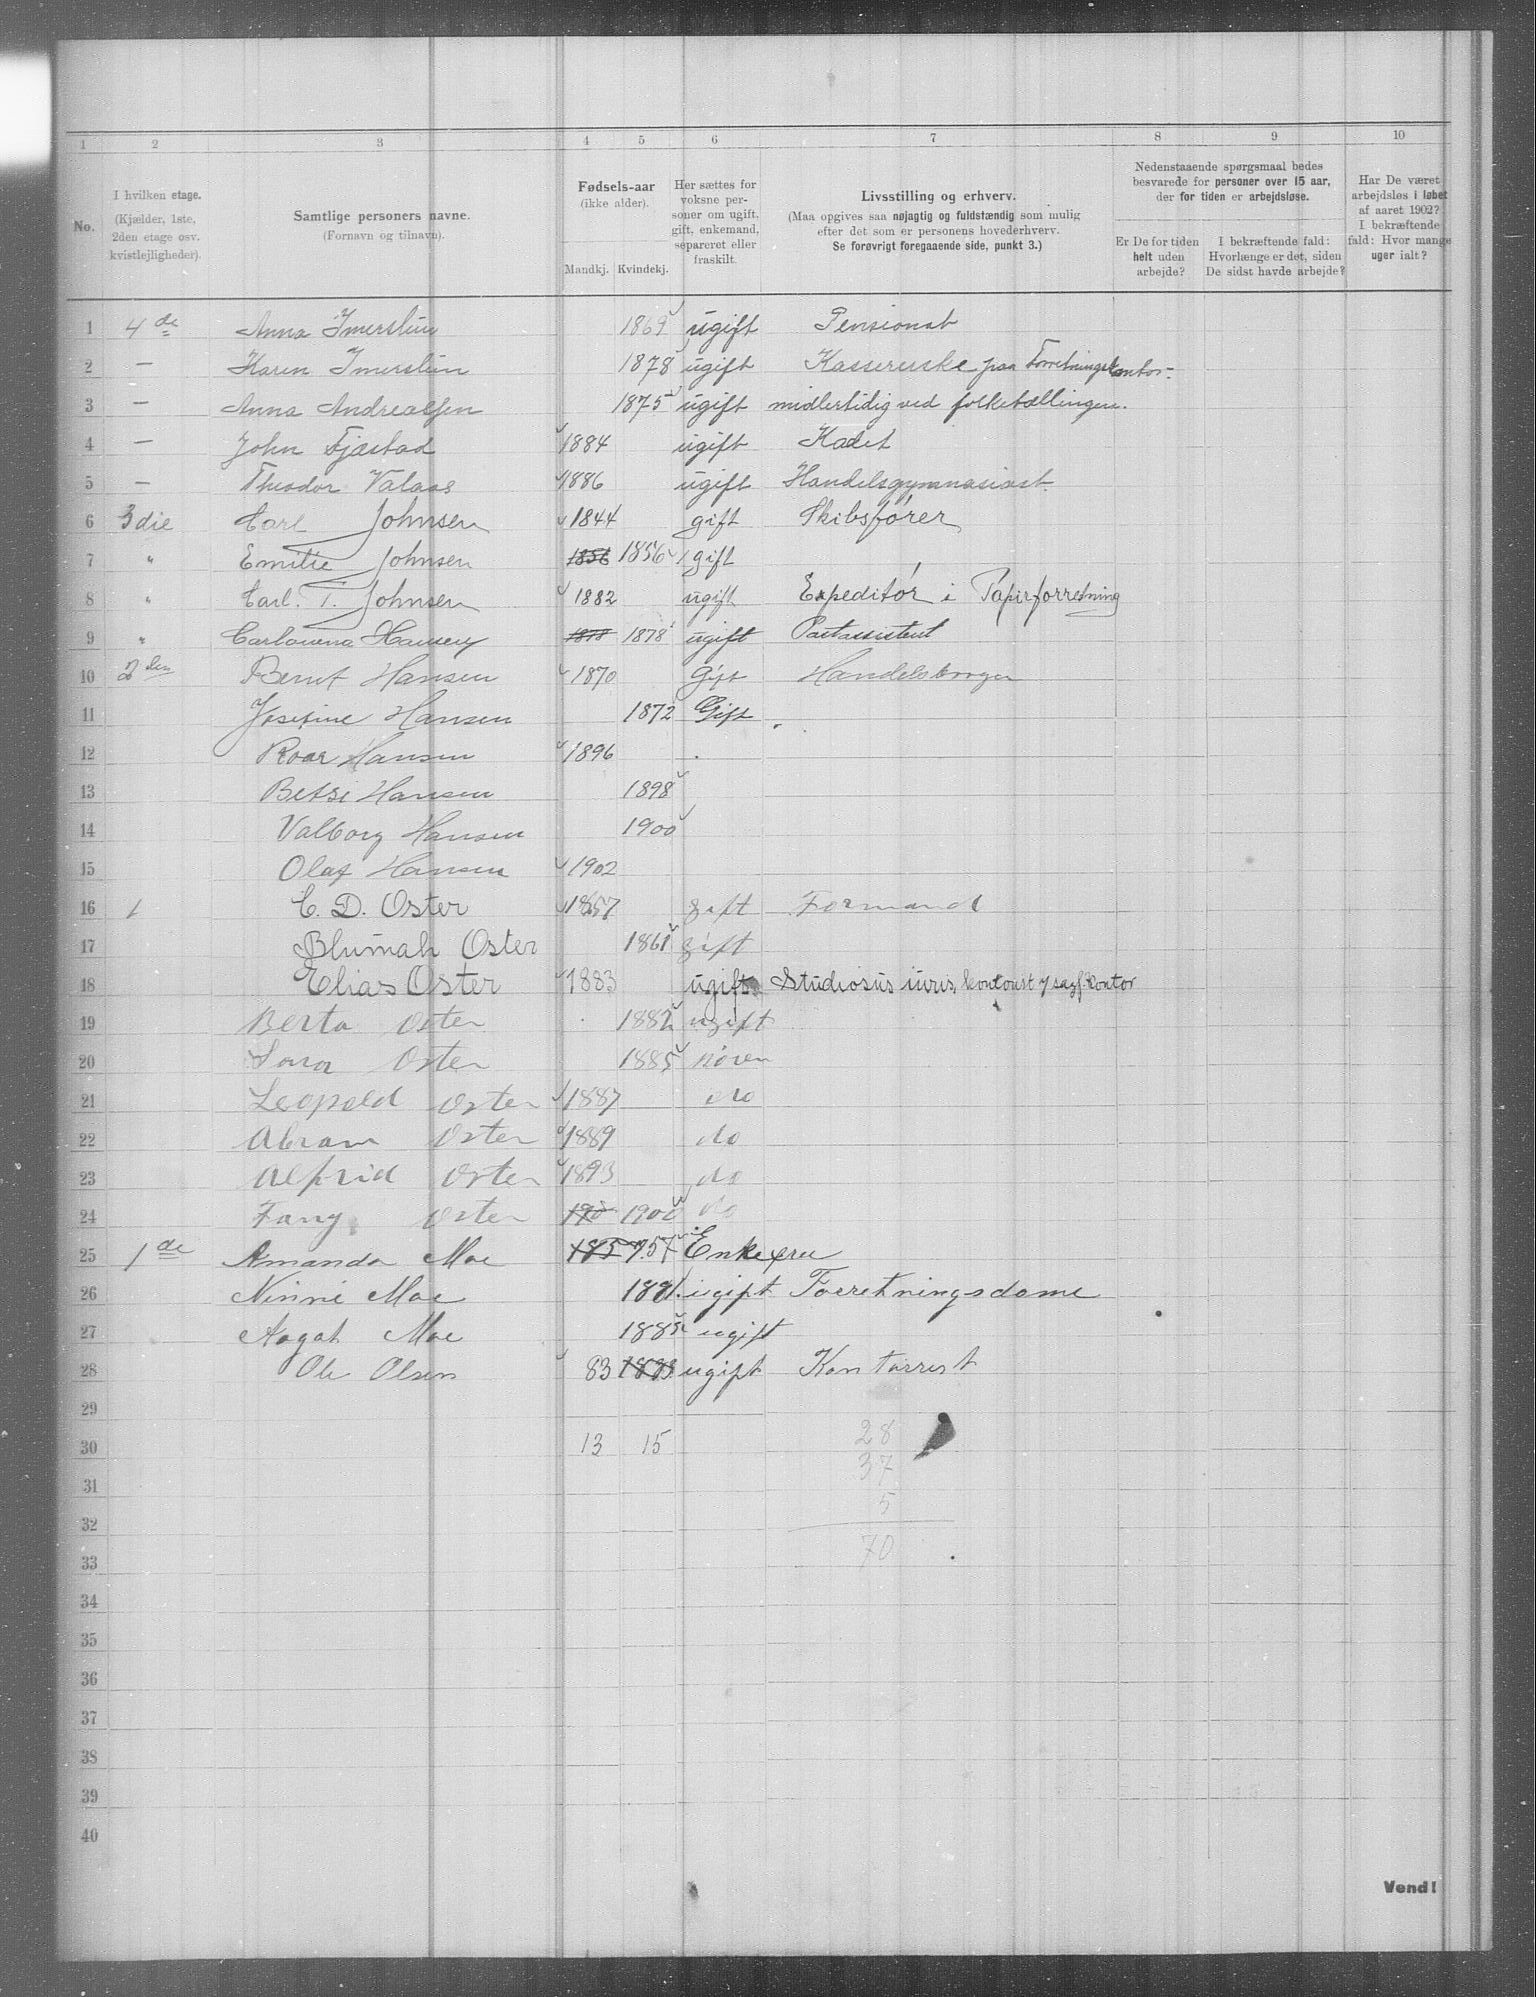 1 2 3 4 5 6 7 8 9 10
No.
I hvilken etage.
(Kjælder, 1ste,
2den etage osv.
kvistlejligheder).
Samtlige personers navne.
(Fornavn og tilnavn).
Fødsels-aar
(ikke alder).
Mandkj. Kvindekj.
Her sættes for
voksne per-
soner om ugift,
gift, enkemand,
separeret eller
fraskilt.
Livsstilling og erhverv.
(Maa opgives saa nøjagtig og fuldstændig som mulig
efter det som er personens hovederhverv.
Se forøvrigt foregaaende side, punkt 3.)
Nedenstaaende spørgsmaal bedes
besvarede for personer over 15 aar,
der for tiden er arbejdsløse.
Er De for tiden
helt uden
arbejde?
I bekræftende fald:
Hvorlænge er det, siden
De sidst havde arbejde?
Har De været
arbejdsløs i løbet
af aaret 1902?
I bekræftende
fald: Hvor mange
uger ialt?
1 4de Anna Imerslun 1869 ugift Pensionat
2 — Karen Imerslun 1878 ugift Kassererske paa Forretningskontor.
3 — Anna Andreassen 1875 ugift midlertidig ved folketællingen.
4 — John Fjæstad 1884 ugift Kadet
5 — Theodor Valaas 1886 ugift Handelsgymnasiast
6 3die Carl Johnsen 1844 gift Skibsfører
7 " Emilie Johnsen 1856 1856 gift
8 " Carl. T. Johnsen 1882 ugift Expeditør i Papirforretning
9 " Hansen 1878 1878 ugift Postassistent
10 2den Bernt Hansen 1870 Gift Handelsborger
11 Josefine Hansen 1872 Gift
12 Roar Hansen 1896
13 Betsi Hansen 1898
14 Valborg Hansen 1900
15 Olaf Hansen 1902
16 1 C. D. Oster 1857 gift Formand
17 Blumah Oster 1861 gift
18 Elias Oster 1883 ugift Studiosus iuris, kontorist / sagf.kontor
19 Berta Oster 1882 ugift
20 Sara Oster 1885
21 Leopold Oster 1887 do
22 Abram Oster 1889 do
23 Alfrid Oster 1893 do
24 Fany Oster 1900 do
25 1de Amanda Moe 1857 57 Enkefru
26 Ninni Moe ugift Forretningsdame
27 Aagot Moe 1885 ugift
28 Ole Olsen 83 ugift Kontorrist
29
30 13 15 28
31 37
32 5
33 70
34
35
36
37
38
39
40
Vend!